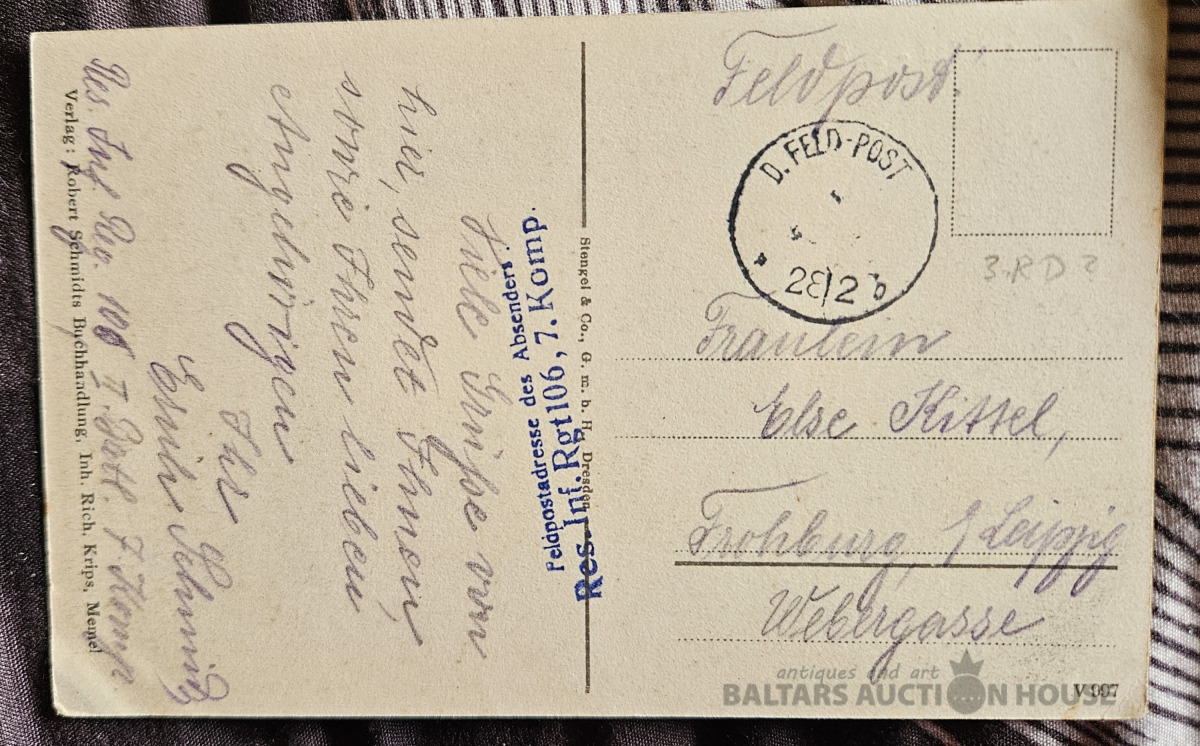 Feldpost.
D. FELD-POST
28/2 b
3. R D 2
Fräulein
Else Kittel,
Frohburg, b/ Leipzig
Webergasse
V 997
Stengel & Co., G. m. b. H., Dresden
Feldpostadresse des Absenders
Res. Inf. Rgt 106, 7. Komp.
Viele Grüße von
hier, sendet Ihnen,
sowie Ihren lieben
Angehörigen
Ihr
Schmidt
Res. Inf. Reg. 106 II. Batl. 7 Komp.
Verlag: Robert Schmidts Buchhandlung, Inh. Rich. Krips, Memel
antiques and art
BALTARS AUCTION HOUSE